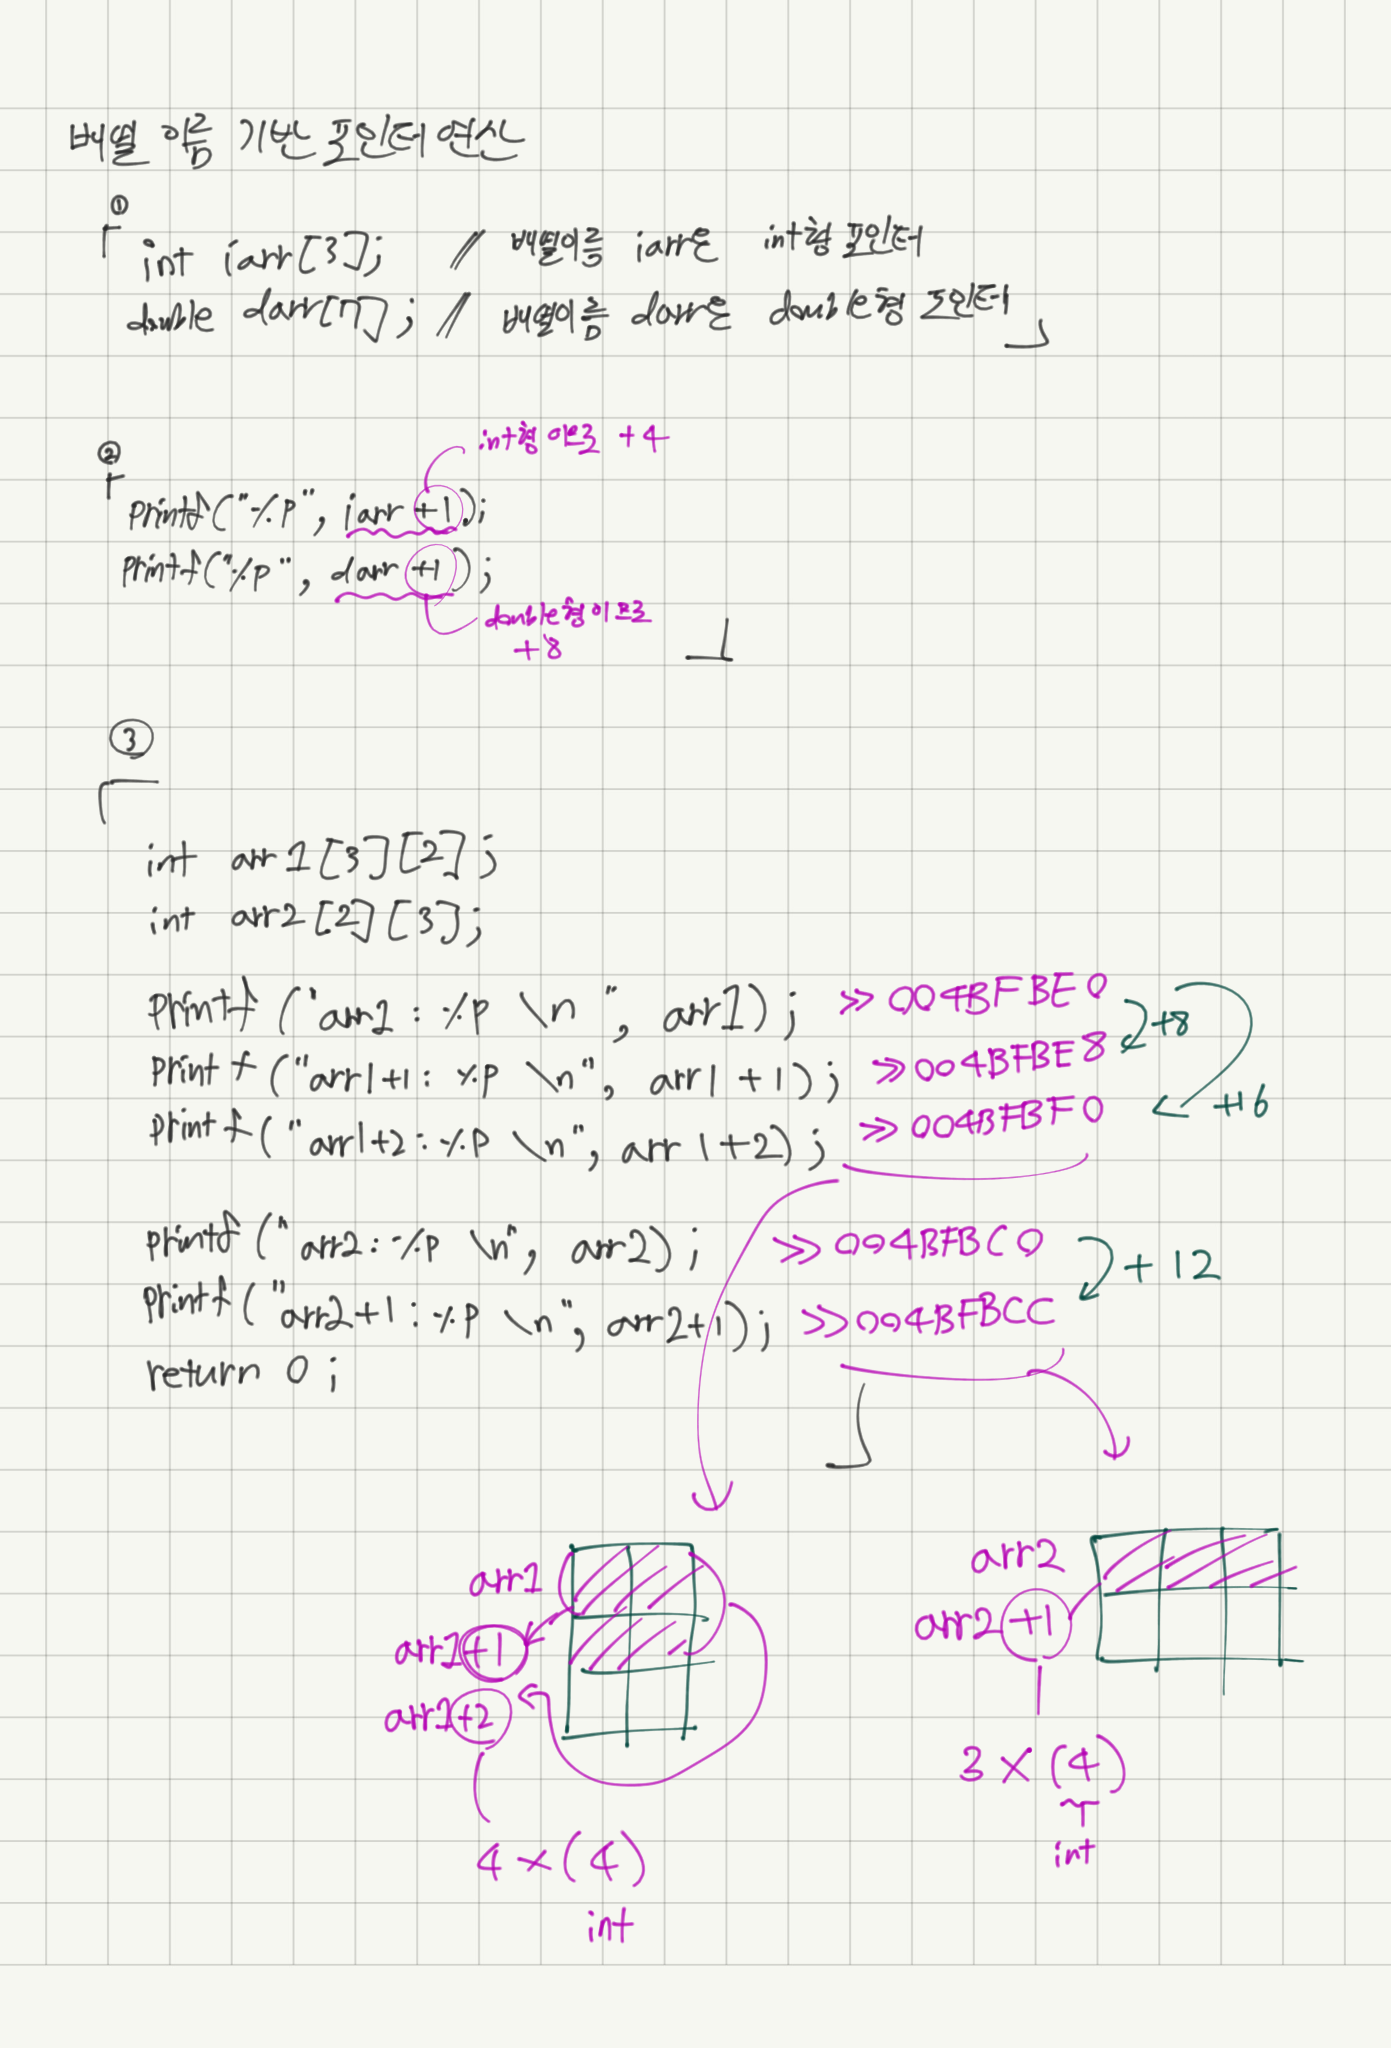 배열 이름 기반 포인터 연산
①
int iarr[3]; // 배열이름 iarr은 int형 포인터
double darr[7]; // 배열이름 darr은 double형 포인터
②
int형이므로 +4
printf("%p", iarr+1);
printf("%p", darr+1);
double형이므로
+8
③
int arr1[3][2];
int arr2[2][3];
printf("arr1 : %p \n", arr1); >> 004BFBE0
+8
printf("arr1+1: %p \n", arr1+1); >> 004BFBE8
printf("arr1+2: %p \n", arr1+2); >> 004BFBF0
+16
printf("arr2: %p \n", arr2); >> 004BFBC0
+12
printf("arr2+1: %p \n", arr2+1); >> 004BFBCC
return 0;
arr1
arr1+1
arr1+2
4×(4)
int
arr2
arr2+1
3×(4)
int